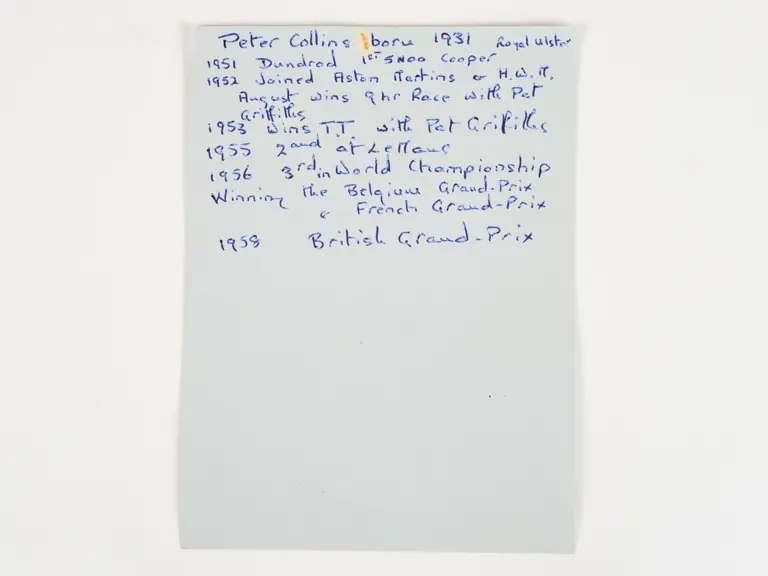 Peter Collins born 1931 Royal Ulster
1951 Dundrod 1st 500 Cooper
1952 Joined Aston Martins & H.W.M.
August wins 9hr Race with Pat
Griffiths
1953 wins T.T. with Pat Griffiths
1955 2and at LeMans
1956 3rd in World Championship
Winning the Belgium Grand-Prix
& French Grand-Prix
1958 British Grand-Prix